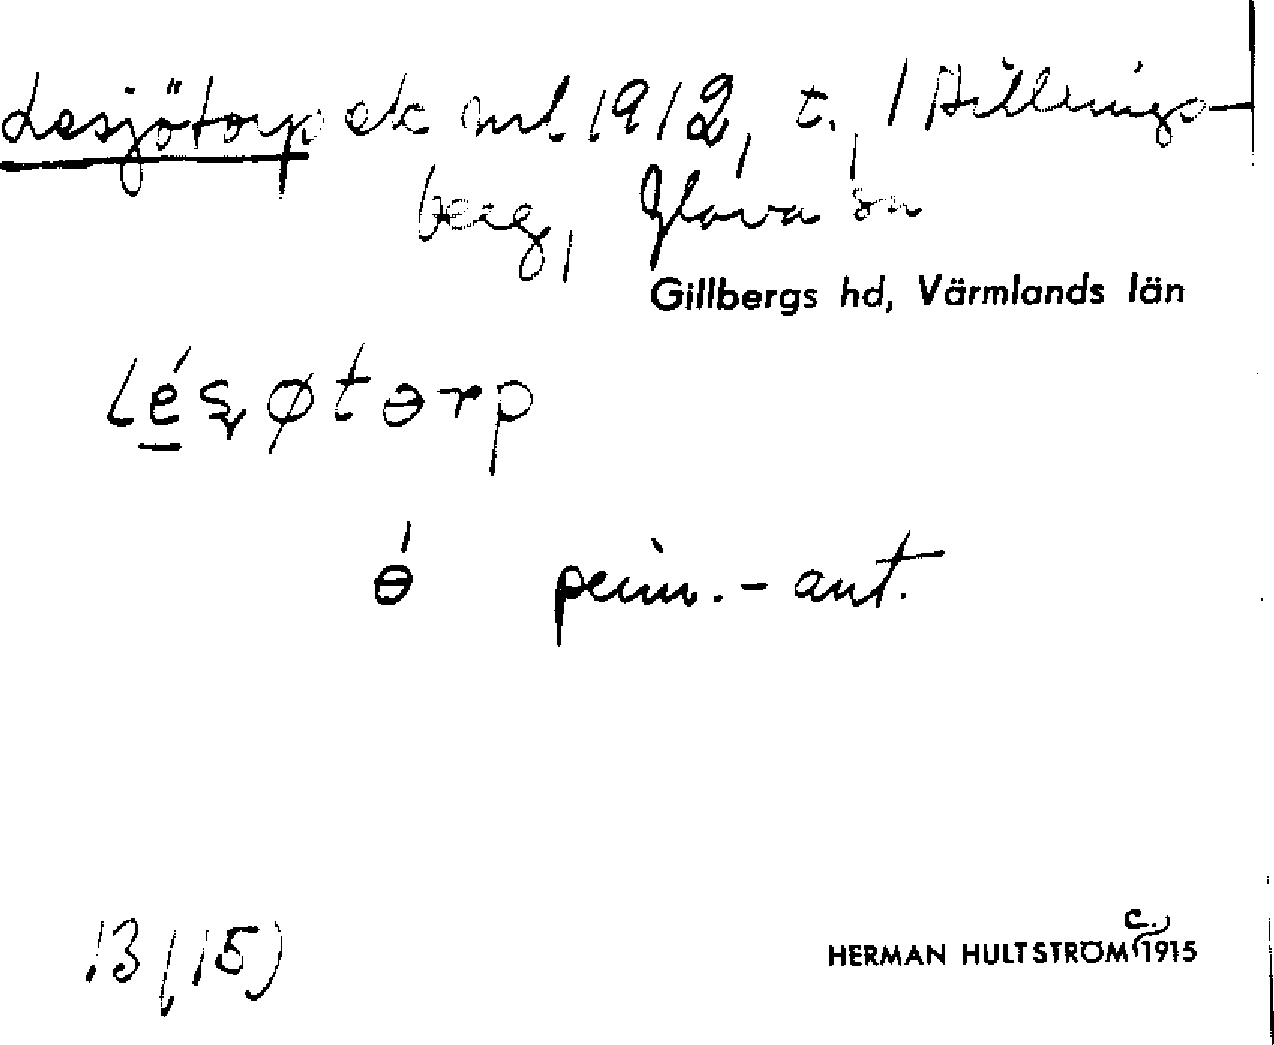 Lesjötorp ek mtl 1912, t. /Hillrings-
berg, Glava sn
Gillbergs hd, Värmlands län
Léșøtɵrp
ɵ́ penm.-ant.
13 (15)
HERMAN HULTSTRÖM c. 1915